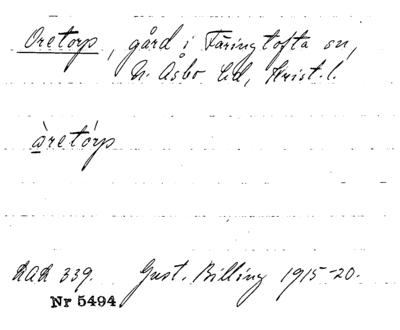 Oretorp, gård i Färingtofta sn,
N. Åsbo hd, Krist. l.
àretórp
LAL 339. Gust. Billing 1915-20.
Nr 5494